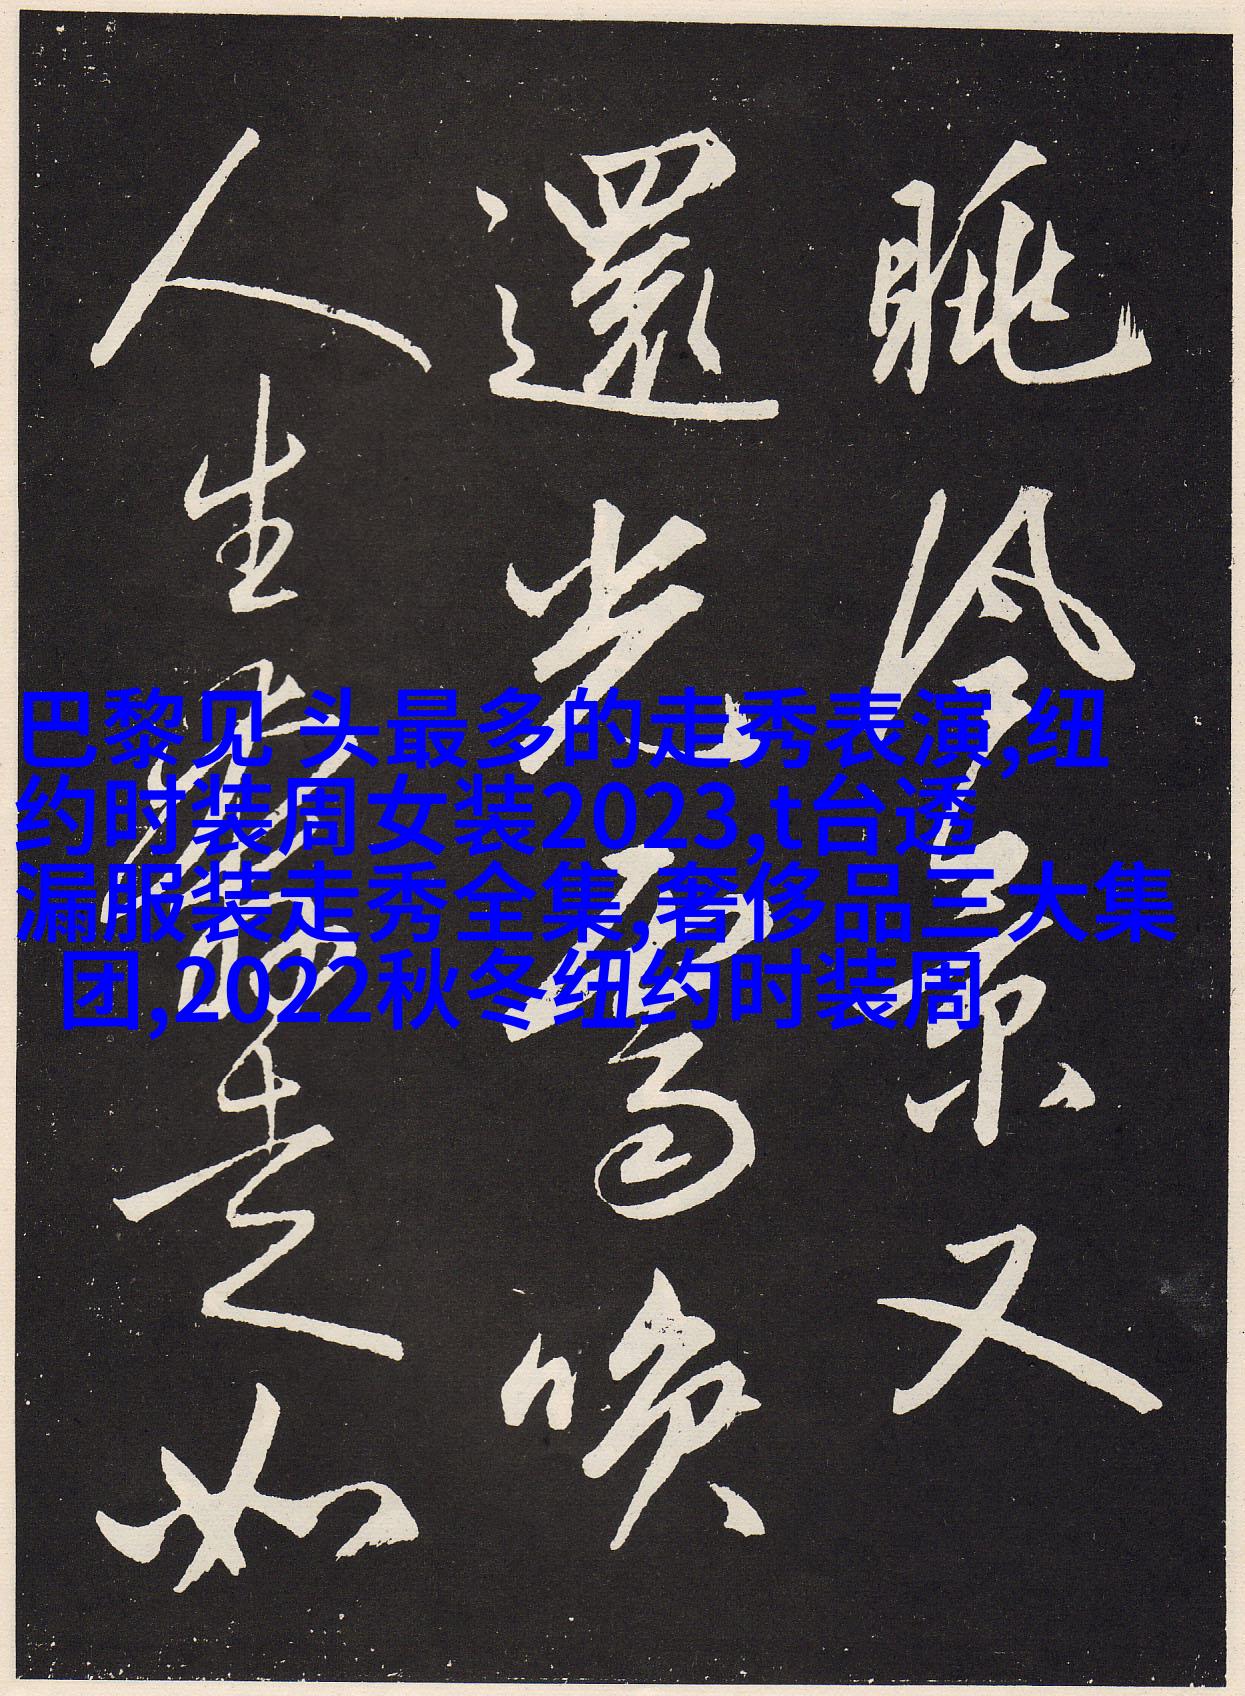 眺冷景又
還光唤
人生走如
巴黎见 头最多的走秀表演,纽
约时装周女装2023,t台透
漏服装走秀全集,奢侈品三大集
团,2022秋冬纽约时装周